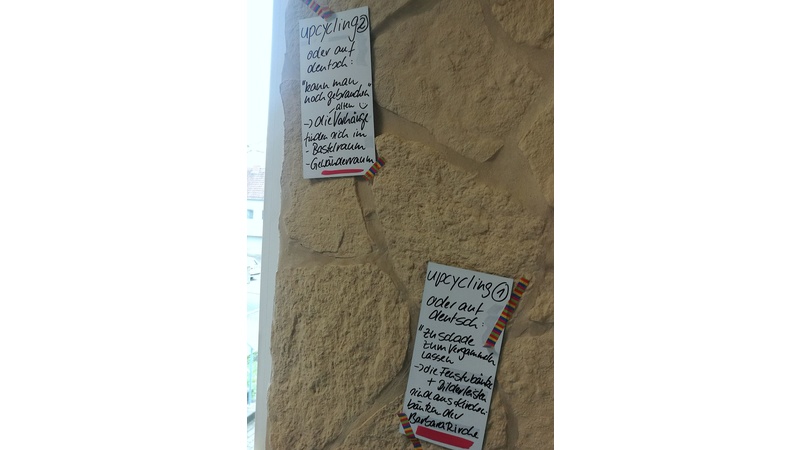 upcycling ②
oder auf
deutsch:
"kann man
noch gebrauchen"
alten
→ die Vorhänge
finden sich im
- Bastelraum
- Gewänderraum
upcycling ①
oder auf
deutsch:
"zu schade
zum Vergammeln
lassen
→ die Fensterbänke
+ Bilderleisten
sind aus Kirchen
bänken der
Barbara Kirche